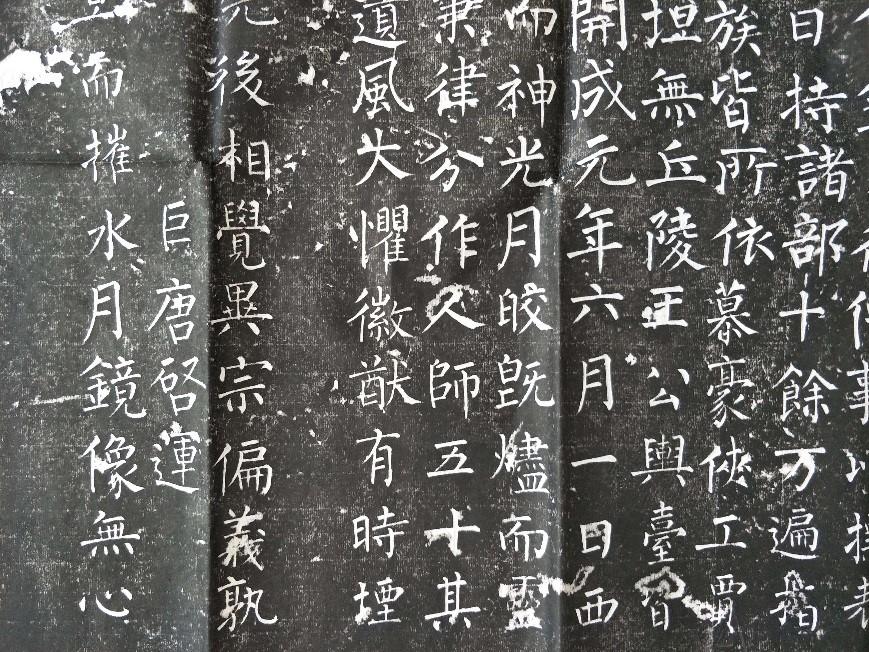 事以
日持諸部十餘万遍指
族皆所依慕豪俠工賈
坦無丘陵王公輿臺皆
開成元年六月一日西
而神光月皎既燼而靈
秉律分作人師五十其
遺風大懼徽猷有時堙
先後相覺異宗偏義孰
巨唐啓運
旦而摧水月鏡像無心